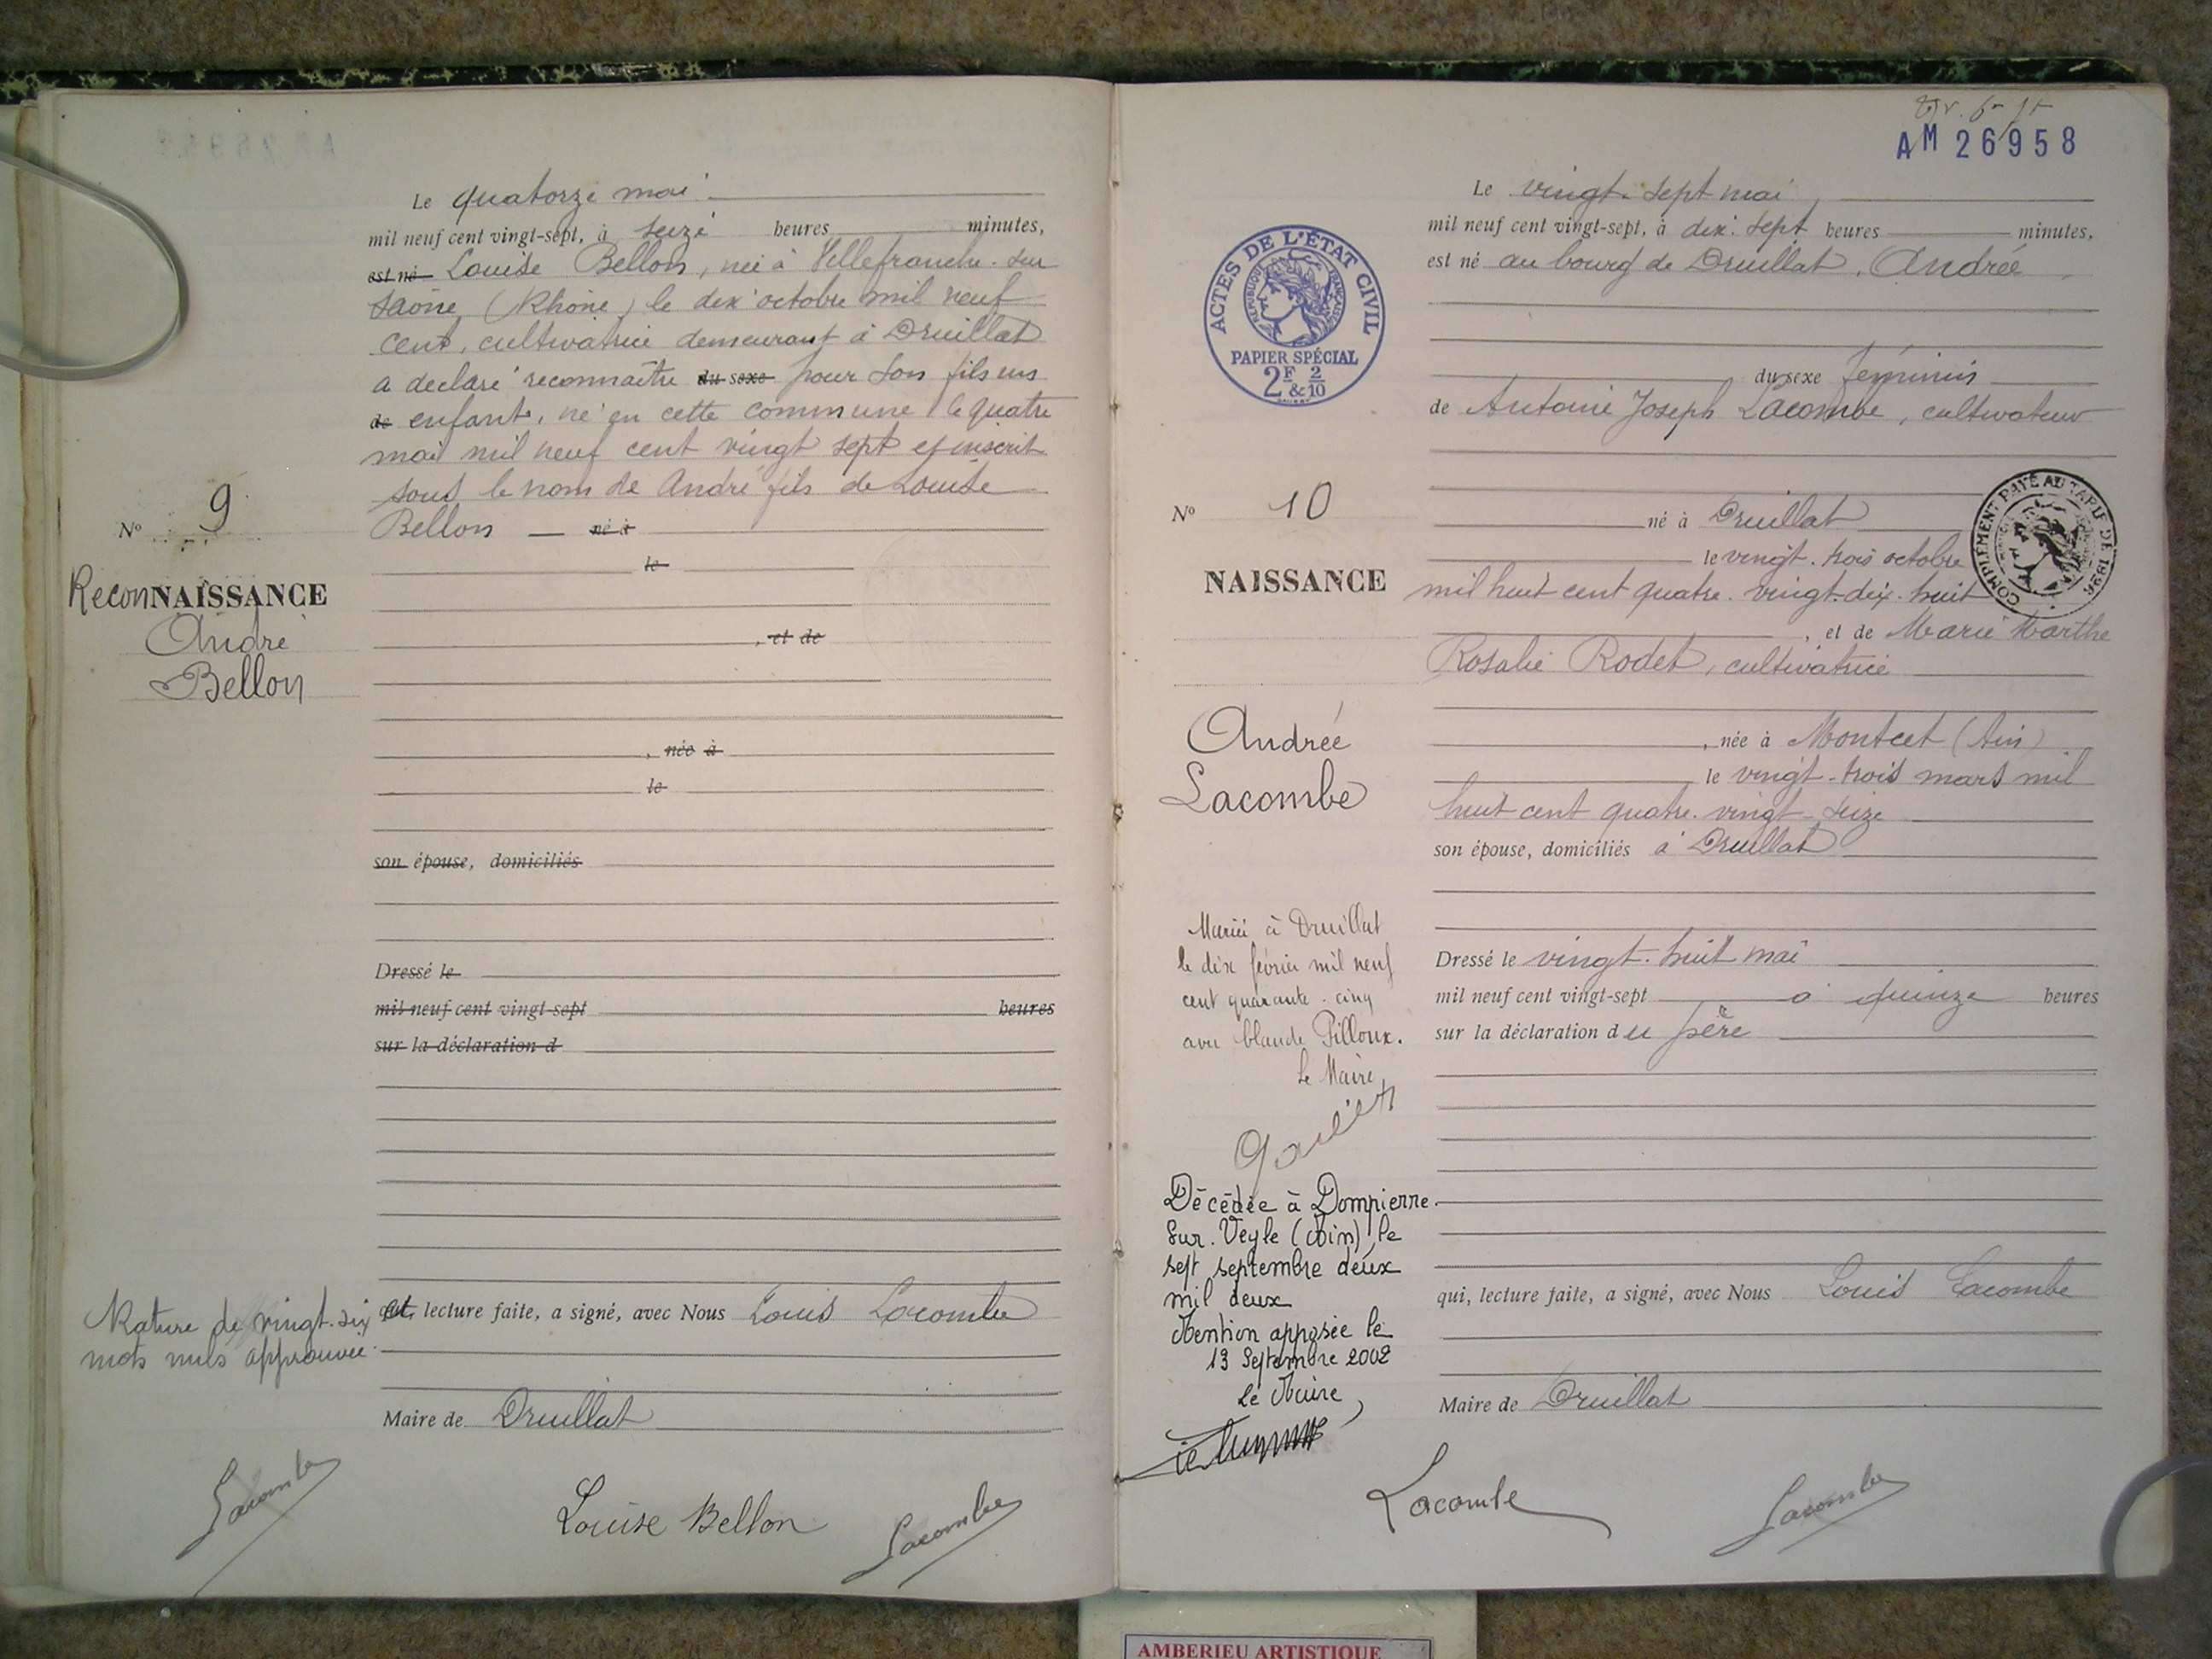 Le quatorze mai
mil neuf cent vingt-sept, à seize heures minutes,
est né Louise Bellon, née à Villefranche-sur
Saône (Rhône) le dix octobre mil neuf
cent, cultivatrice demeurant à Druillat
a déclaré reconnaître du sexe pour son fils un
de enfant, né en cette commune le quatre
mai mil neuf cent vingt sept et inscrit
sous le nom de André fils de Louise
Bellon — né à
le
, et de
, née à
le
son épouse, domiciliés
Dressé le
mil neuf cent vingt-sept heures
sur la déclaration d
et, lecture faite, a signé, avec Nous Louis Lacombe
Maire de Druillat
Nº 9
ReconNAISSANCE
André
Bellon
Rature de vingt-six
mots nuls approuvée
Lacombe
Louise Bellon
Lacombe
AM 26958
Le vingt-sept mai
mil neuf cent vingt-sept, à dix-sept heures minutes,
est né au bourg de Druillat, Andrée
du sexe féminin
de Antoine Joseph Lacombe, cultivateur
né à Druillat
le vingt-trois octobre
mil huit cent quatre-vingt-dix-huit
, et de Marie Marthe
Rosalie Rodet, cultivatrice
, née à Montcet (Ain)
le vingt-trois mars mil
huit cent quatre-vingt-seize
son épouse, domiciliés à Druillat
Dressé le vingt-huit mai
mil neuf cent vingt-sept à quinze heures
sur la déclaration du père
qui, lecture faite, a signé, avec Nous Louis Lacombe
Maire de Druillat
ACTES DE L'ÉTAT CIVIL
RÉPUBLIQUE FRANÇAISE
PAPIER SPÉCIAL
2F & 2/10
COMPLÉMENT PAYÉ AU TARIF DE 1926
Nº 10
NAISSANCE
Andrée
Lacombe
Mariée à Druillat
le dix février mil neuf
cent quarante-cinq
avec Claude Pilloux.
Le Maire,
Décédée à Dompierre
sur-Veyle (Ain) le
sept septembre deux
mil deux
Mention apposée le
13 Septembre 2002
Le Maire,
Lacombe
Lacombe
AMBERIEU ARTISTIQUE